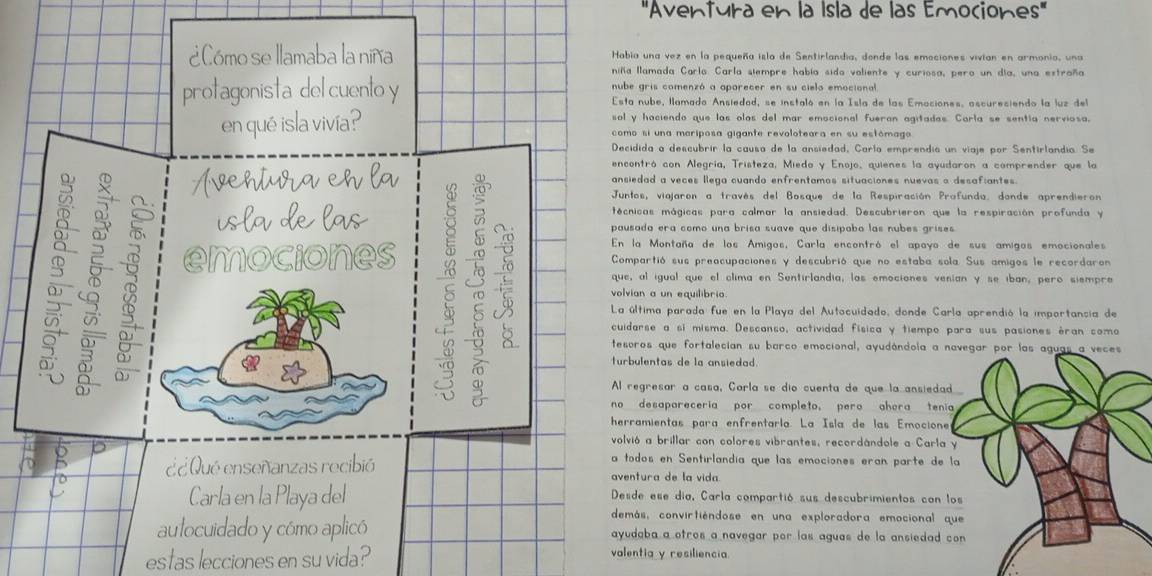 ¿Cómo se llamaba la niña
protagonista del cuento y
en qué isla vivía?
¿Qué representaba la
extraña nube gris llamada
ansiedad en la historia?
Aventura en la
isla de las
emociones
¿Cuáles fueron las emociones
que ayudaron a Carla en su viaje
por Sentirlandia?
¿¿Qué enseñanzas recibió
Carla en la Playa del
autocuidado y cómo aplicó
estas lecciones en su vida?
"Aventura en la Isla de las Emociones"
Había una vez en la pequeña isla de Sentirlandia, donde las emociones vivían en armonía, una
niña llamada Carla. Carla siempre había sido valiente y curiosa, pero un día, una extraña
nube gris comenzó a aparecer en su cielo emocional.
Esta nube, llamada Ansiedad, se instaló en la Isla de las Emociones, oscureciendo la luz del
sol y haciendo que las olas del mar emocional fueran agitadas. Carla se sentía nerviosa,
como si una mariposa gigante revoloteara en su estómago.
Decidida a descubrir la causa de la ansiedad, Carla emprendió un viaje por Sentirlandia. Se
encontró con Alegría, Tristeza, Miedo y Enojo, quienes la ayudaron a comprender que la
ansiedad a veces llega cuando enfrentamos situaciones nuevas o desafiantes.
Juntos, viajaron a través del Bosque de la Respiración Profunda, donde aprendieron
técnicas mágicas para calmar la ansiedad. Descubrieron que la respiración profunda y
pausada era como una brisa suave que disipaba las nubes grises.
En la Montaña de los Amigos, Carla encontró el apoyo de sus amigos emocionales
Compartió sus preocupaciones y descubrió que no estaba sola. Sus amigos le recordaron
que, al igual que el clima en Sentirlandia, las emociones venían y se iban, pero siempre
volvían a un equilibrio.
La última parada fue en la Playa del Autocuidado, donde Carla aprendió la importancia de
cuidarse a sí misma. Descanso, actividad física y tiempo para sus pasiones eran como
tesoros que fortalecían su barco emocional, ayudándola a navegar por las aguas a veces
turbulentas de la ansiedad.
Al regresar a casa, Carla se dio cuenta de que la ansiedad
no desaparecería por completo, pero ahora tenía
herramientas para enfrentarla. La Isla de las Emocione
volvió a brillar con colores vibrantes, recordándole a Carla y
a todos en Sentirlandia que las emociones eran parte de la
aventura de la vida.
Desde ese día, Carla compartió sus descubrimientos con los
demás, convirtiéndose en una exploradora emocional que
ayudaba a otros a navegar por las aguas de la ansiedad con
valentía y resiliencia.